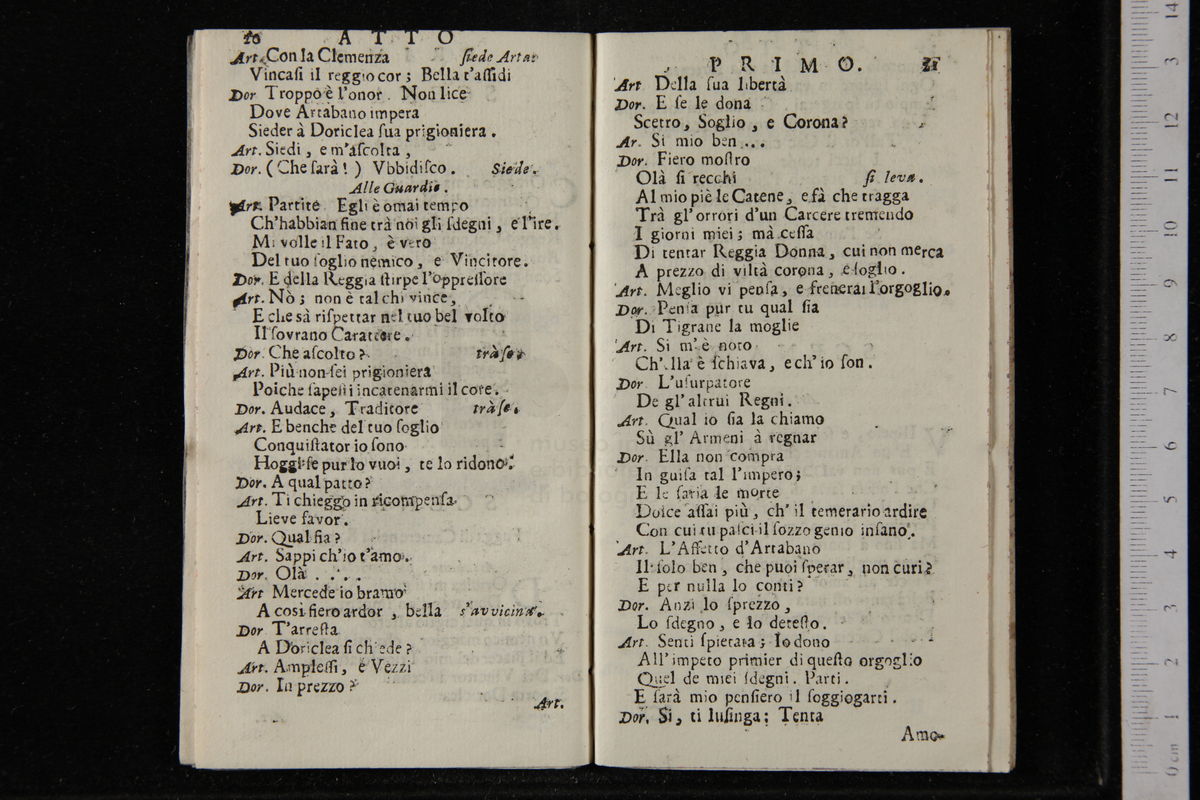 10 ATTO
Art. Con la Clemenza ſiede Artar
Vincaſi il reggio cor; Bella t'aſſidi
Dor Troppo è l'onor. Non lice
Dove Artabano impera
Sieder à Doriclea ſua prigioniera.
Art. Siedi, e m'aſcolta,
Dor. (Che ſarà!) Vbbidiſco. Siede.
Alle Guardie.
Art. Partite Egli è omai tempo
Ch'habbian fine trà noi gli ſdegni, e l'ire.
Mi volle il Fato, è vero
Del tuo ſoglio nemico, e Vincitore.
Dor. E della Reggia ſtirpe l'oppreſſore
Art. Nò; non è tal chi vince,
E che sà riſpettar nel tuo bel volto
Il ſovrano Carattere.
Dor. Che aſcolto? trà ſe.
Art. Più non ſei prigioniera
Poiche ſapeſti incatenarmi il core.
Dor. Audace, Traditore trà ſe.
Art. E benche del tuo ſoglio
Conquiſtator io ſono
Hoggi ſe pur lo vuoi, te lo ridono.
Dor. A qual patto?
Art. Ti chieggo in ricompenſa
Lieve favor.
Dor. Qual ſia?
Art. Sappi ch'io t'amo.
Dor. Olà....
Art Mercede io bramo
A cosi fiero ardor, bella s'avvicina.
Dor T'arreſta
A Doriclea ſi chiede?
Art. Ampleſſi, e Vezzi
Dor. In prezzo?
Art.
PRIMO. 21
Art Della ſua libertà
Dor. E ſe le dona
Scetro, Soglio, e Corona?
Ar. Si mio ben...
Dor. Fiero moſtro
Olà ſi recchi ſi leva.
Al mio piè le Catene, e fà che tragga
Trà gl'orrori d'un Carcere tremendo
I giorni miei; mà ceſſa
Di tentar Reggia Donna, cui non merca
A prezzo di viltà corona, e ſoglio.
Art. Meglio vi penſa, e frenerai l'orgoglio.
Dor. Penſa pur tu qual ſia
Di Tigrane la moglie
Art. Si m'è noto
Ch'ella è ſchiava, e ch'io ſon.
Dor L'uſurpatore
De gl'altrui Regni.
Art. Qual io ſia la chiamo
Sù gl'Armeni à regnar
Dor. Ella non compra
In guiſa tal l'impero;
E le ſaria le morte
Dolce aſſai più, ch'il temerario ardire
Con cui tu paſci il ſozzo genio inſano.
Art. L'Affetto d'Artabano
Il ſolo ben, che puoi ſperar, non curi?
E per nulla lo conti?
Dor. Anzi lo ſprezzo,
Lo ſdegno, e lo deteſto.
Art. Senti ſpietata; Io dono
All'impeto primier di queſto orgoglio
Quel de miei ſdegni. Parti.
E ſarà mio penſiero il ſoggiogarti.
Dor. Si, ti luſinga; Tenta
Amo-